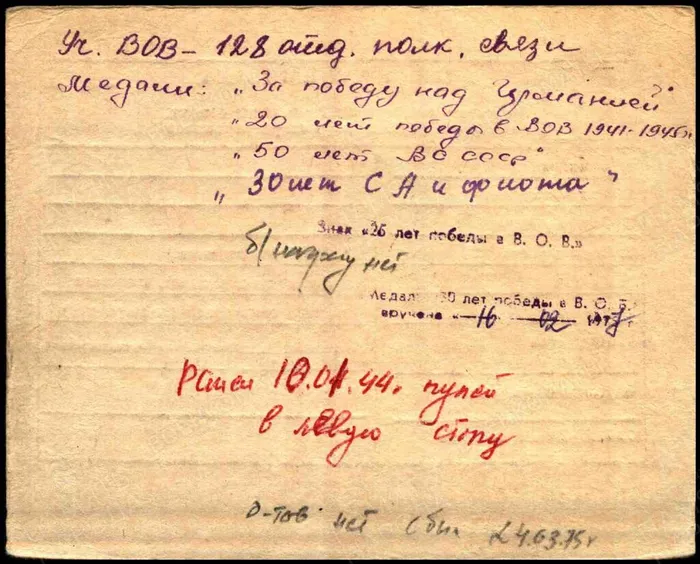 Уч. ВОВ - 128 отд. полк. связи
Медали: „За победу над Германией"
„20 лет победы в ВОВ 1941-1945г„
„50 лет ВС СССР"
„30 лет СА и флота"
Знак «25 лет победы в В. О. В.»
б/ нет
Медаль «30 лет победы в В. О. В.
вручена «16 02 197
Ранен 10.01.44г. пулей
в левую стопу
нет